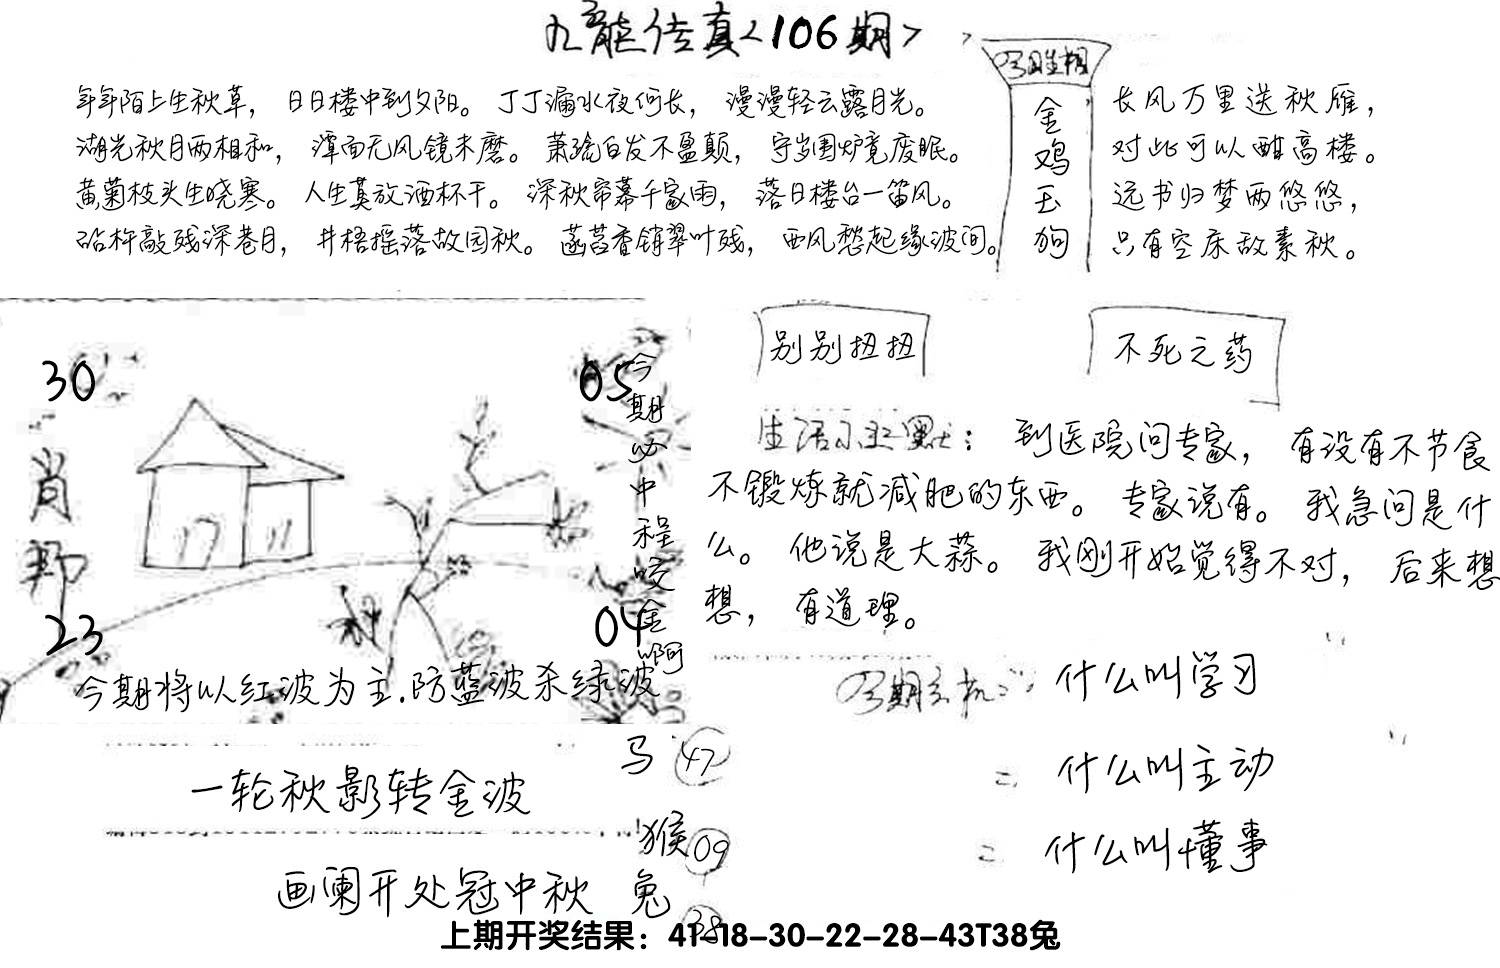 九龙传真<106期>
年年陌上生秋草，日日楼中到夕阳。丁丁漏水夜何长，漫漫轻云露月光。
湖光秋月两相和，潭面无风镜未磨。萧飒白发不盈颠，守岁围炉竟废眠。
黄菊枝头生晓寒。人生莫放酒杯干。深秋帘幕千家雨，落日楼台一笛风。
砧杵敲残深巷月，井梧摇落故园秋。菡萏香销翠叶残，西风愁起缘波间。
金
鸡
玉
狗
长风万里送秋雁，
对此可以酣高楼。
远书归梦两悠悠，
只有空床敌素秋。
30
05
肖
23
04
今期必中程咬金啊
今期将以红波为主.防蓝波杀绿波
别别扭扭
不死之药
生活小幽默：到医院问专家，有没有不节食
不锻炼就减肥的东西。专家说有。我急问是什
么。他说是大蒜。我刚开始觉得不对，后来想
想，有道理。
什么叫学习
二 什么叫主动
二 什么叫懂事
一轮秋影转金波
画阑开处冠中秋
马 47
猴 09
兔 38
上期开奖结果：41-18-30-22-28-43T38兔